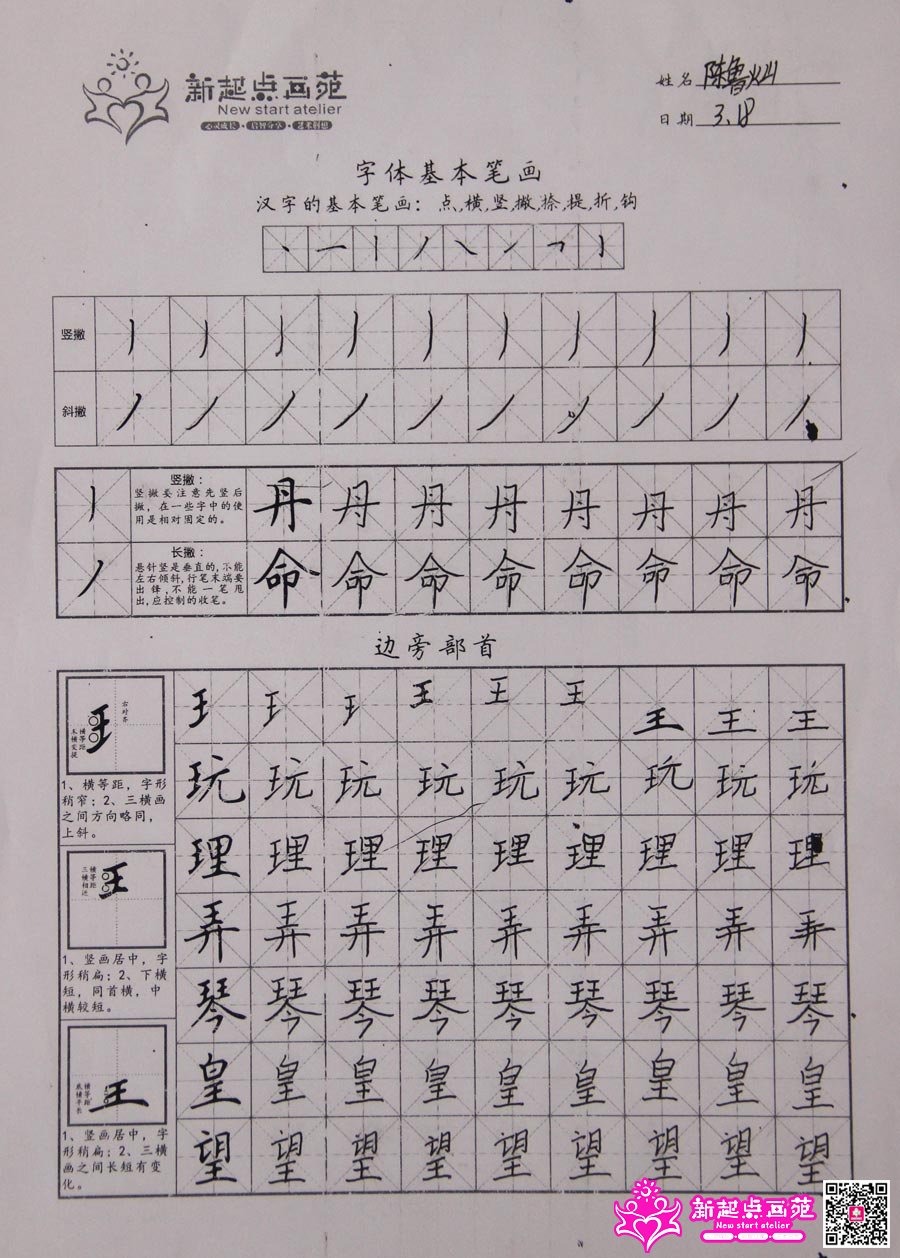 新起点画苑
New start atelier
心灵成长·启智分享·艺术创想
姓名 陈鲁灿
日期 3.18
字体基本笔画
汉字的基本笔画：点,横,竖,撇,捺,提,折,钩
竖撇
斜撇
竖撇：
竖撇要注意先竖后
撇，在一些字中的使
用是相对固定的。
丹 丹 丹 丹 丹 丹 丹 丹
长撇：
悬针竖是垂直的,不能
左右倾斜,行笔末端要
出锋,不能一笔甩
出,应控制的收笔。
命 命 命 命 命 命 命 命
边旁部首
右对齐
横等距
末横变提
王 王 王 王 王 王 王 王 王 王
1、横等距，字形
稍窄；2、三横画
之间方向略同，
上斜。
玩 玩 玩 玩 玩 玩 玩 玩 玩
理 理 理 理 理 理 理 理 理
横等距
三横相近
王
1、竖画居中，字
形稍扁；2、下横
短，同首横，中
横较短。
弄 弄 弄 弄 弄 弄 弄 弄 弄
琴 琴 琴 琴 琴 琴 琴 琴 琴
横等距
底横平长
王
1、竖画居中，字
形稍扁；2、三横
画之间长短有变
化。
皇 皇 皇 皇 皇 皇 皇 皇 皇
望 望 望 望 望 望 望 望 望
新起点画苑
New start atelier